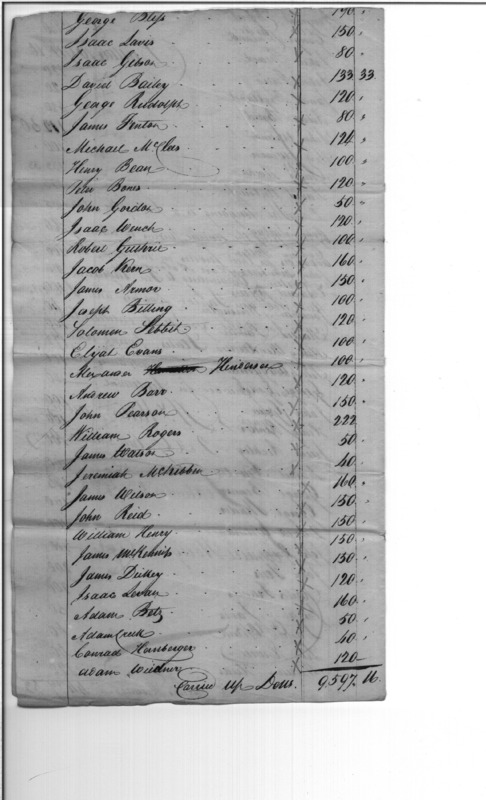 George Bless 190
Isaac Lavis 150 "
Isaac Gibson 80 "
David Bailey 133 33
George Riddolph 120 "
James Fenton 80 "
Michael McClees 124 "
Henry Bean 100 "
Peter Bones 120 "
John Gordon 50 "
Isaac Wench 120 "
Robert Guthrie 100 "
Jacob Kern 160 "
James Armor 150 "
Joseph Bitting 100 "
Solomon 120 "
Elijah Evans 100 "
Alexander Henderson 100 "
Andrew Barr 120 "
John Pearson 150 "
William Rogers 222
James Watson 50 "
Jeremiah McKibbin 40 "
James Wilson 160 "
John Reid 150 "
William Henry 150 "
James McKennis 150 "
James Dickey 150 "
Isaac Levan 120 "
Adam Betz 160 "
Adam 50 "
Conrad Hersberger 40 "
Adam Weidner 120
Carried Up Dolls. 9,597. 16